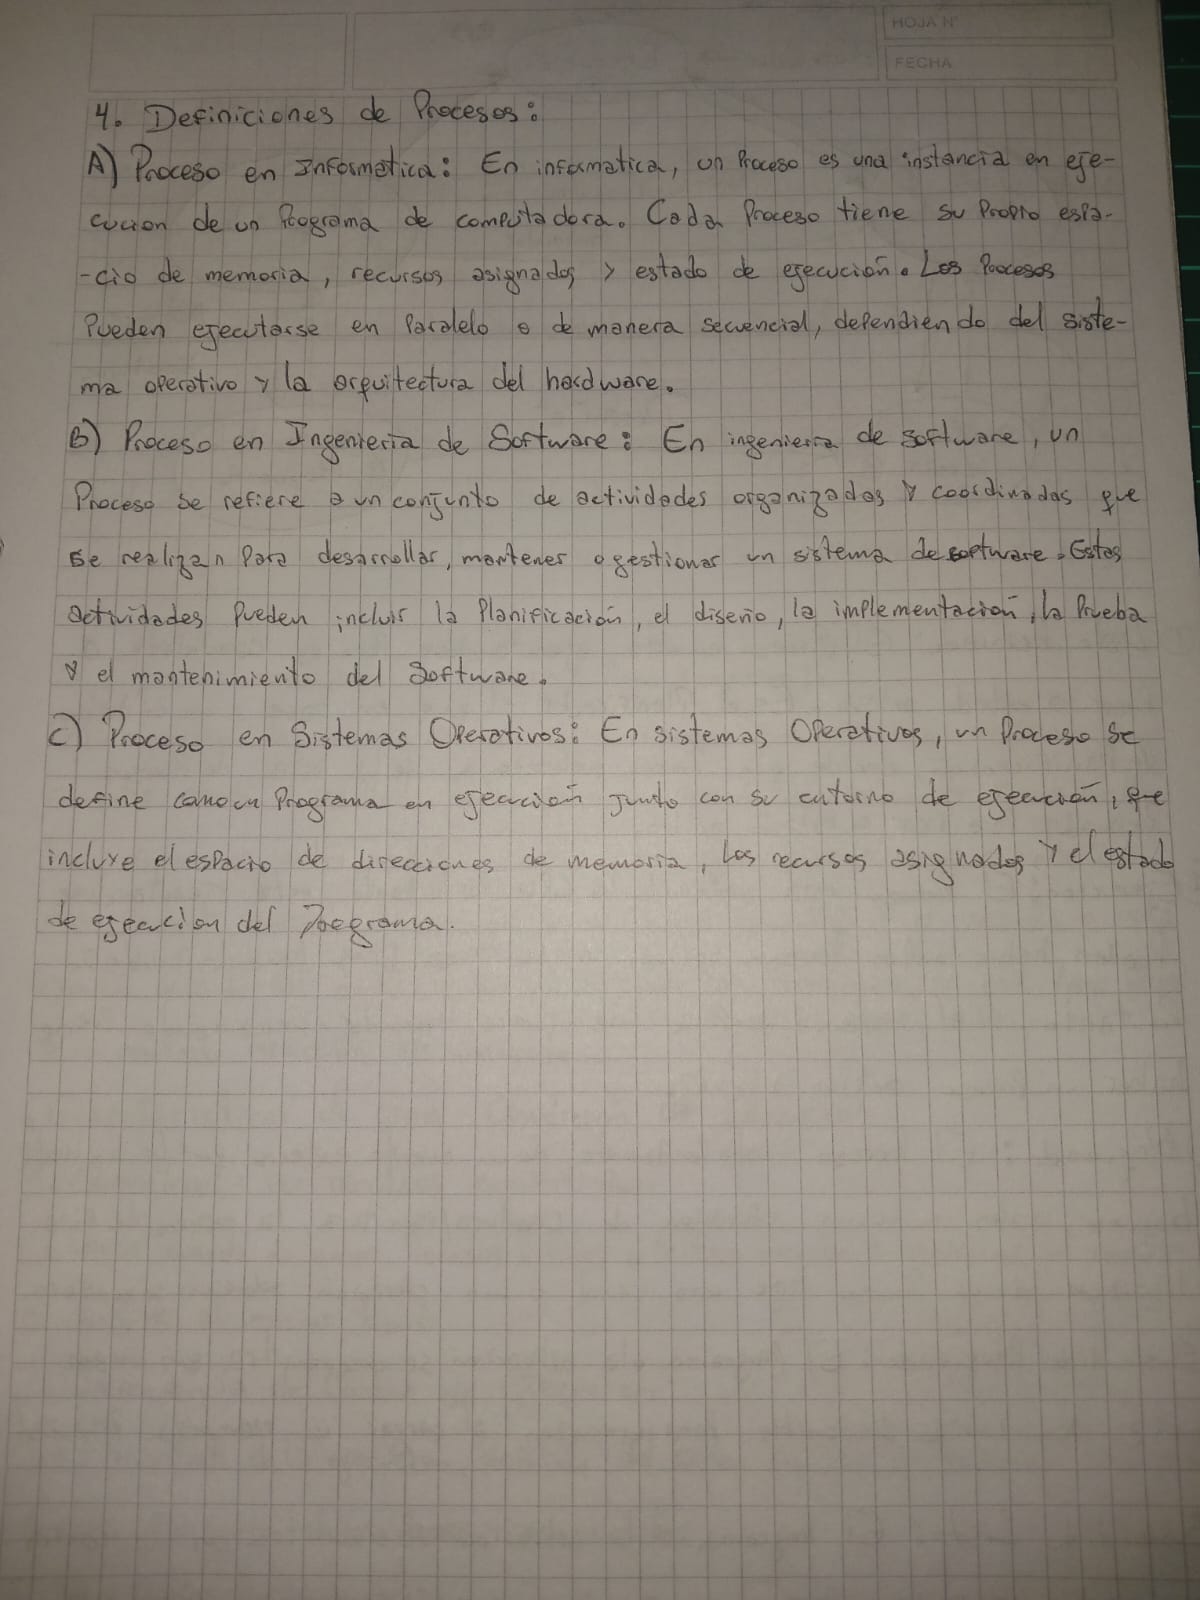 HOJA N°
FECHA
4. Definiciones de Procesos:
A) Proceso en Informatica: En informatica, un Proceso es una instancia en eje-
cucion de un Programa de computadora. Cada Proceso tiene su Propio espa-
-cio de memoria, recursos asignados y estado de ejecución. Los Procesos
Pueden ejecutarse en Paralelo o de manera secuencial, dependiendo del siste-
ma operativo y la arquitectura del hardware.
B) Proceso en Ingenieria de Software: En ingenieria de software, un
Proceso se refiere a un conjunto de actividades organizadas y coordinadas que
se realizan Para desarrollar, mantener o gestionar un sistema de software. Estas
actividades Pueden incluir la Planificación, el diseño, la implementación, la Prueba
y el mantenimiento del Software.
C) Proceso en Sistemas Operativos: En sistemas Operativos, un Proceso se
define como un Programa en ejecución junto con su entorno de ejecución, que
incluye el espacio de direcciones de memoria, los recursos asignados y el estado
de ejecucion del Programa.